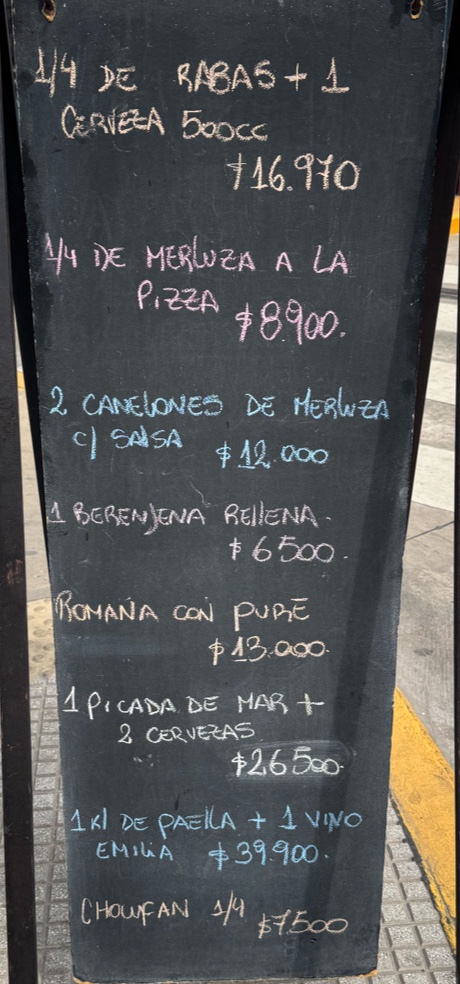 1/4 DE RABAS + 1
CERVEZA 500CC
$16.970
1/4 DE MERLUZA A LA
PIZZA $8.900.
2 CANELONES DE MERLUZA
C/ SALSA $12.000
1 BERENJENA RELLENA.
$6500.
ROMANA CON PURE
$13.000.
1 PICADA DE MAR +
2 CERVEZAS
$26500.
1 Kl DE PAELLA + 1 VINO
EMILIA $39.900.
CHOWFAN 1/4 $7.500